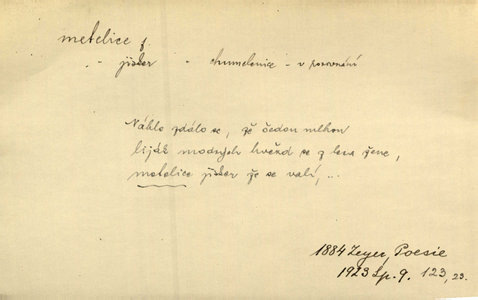 metelice f
-"- jisker -"- chumelenice - v porovnání
Náhle zdálo se, že šedou mlhou
liják modrých hvězd se z lesa žene,
metelice jisker že se valí, ...
1884 Zeyer, Poesie
1923 Sp. 9. 123, 23.